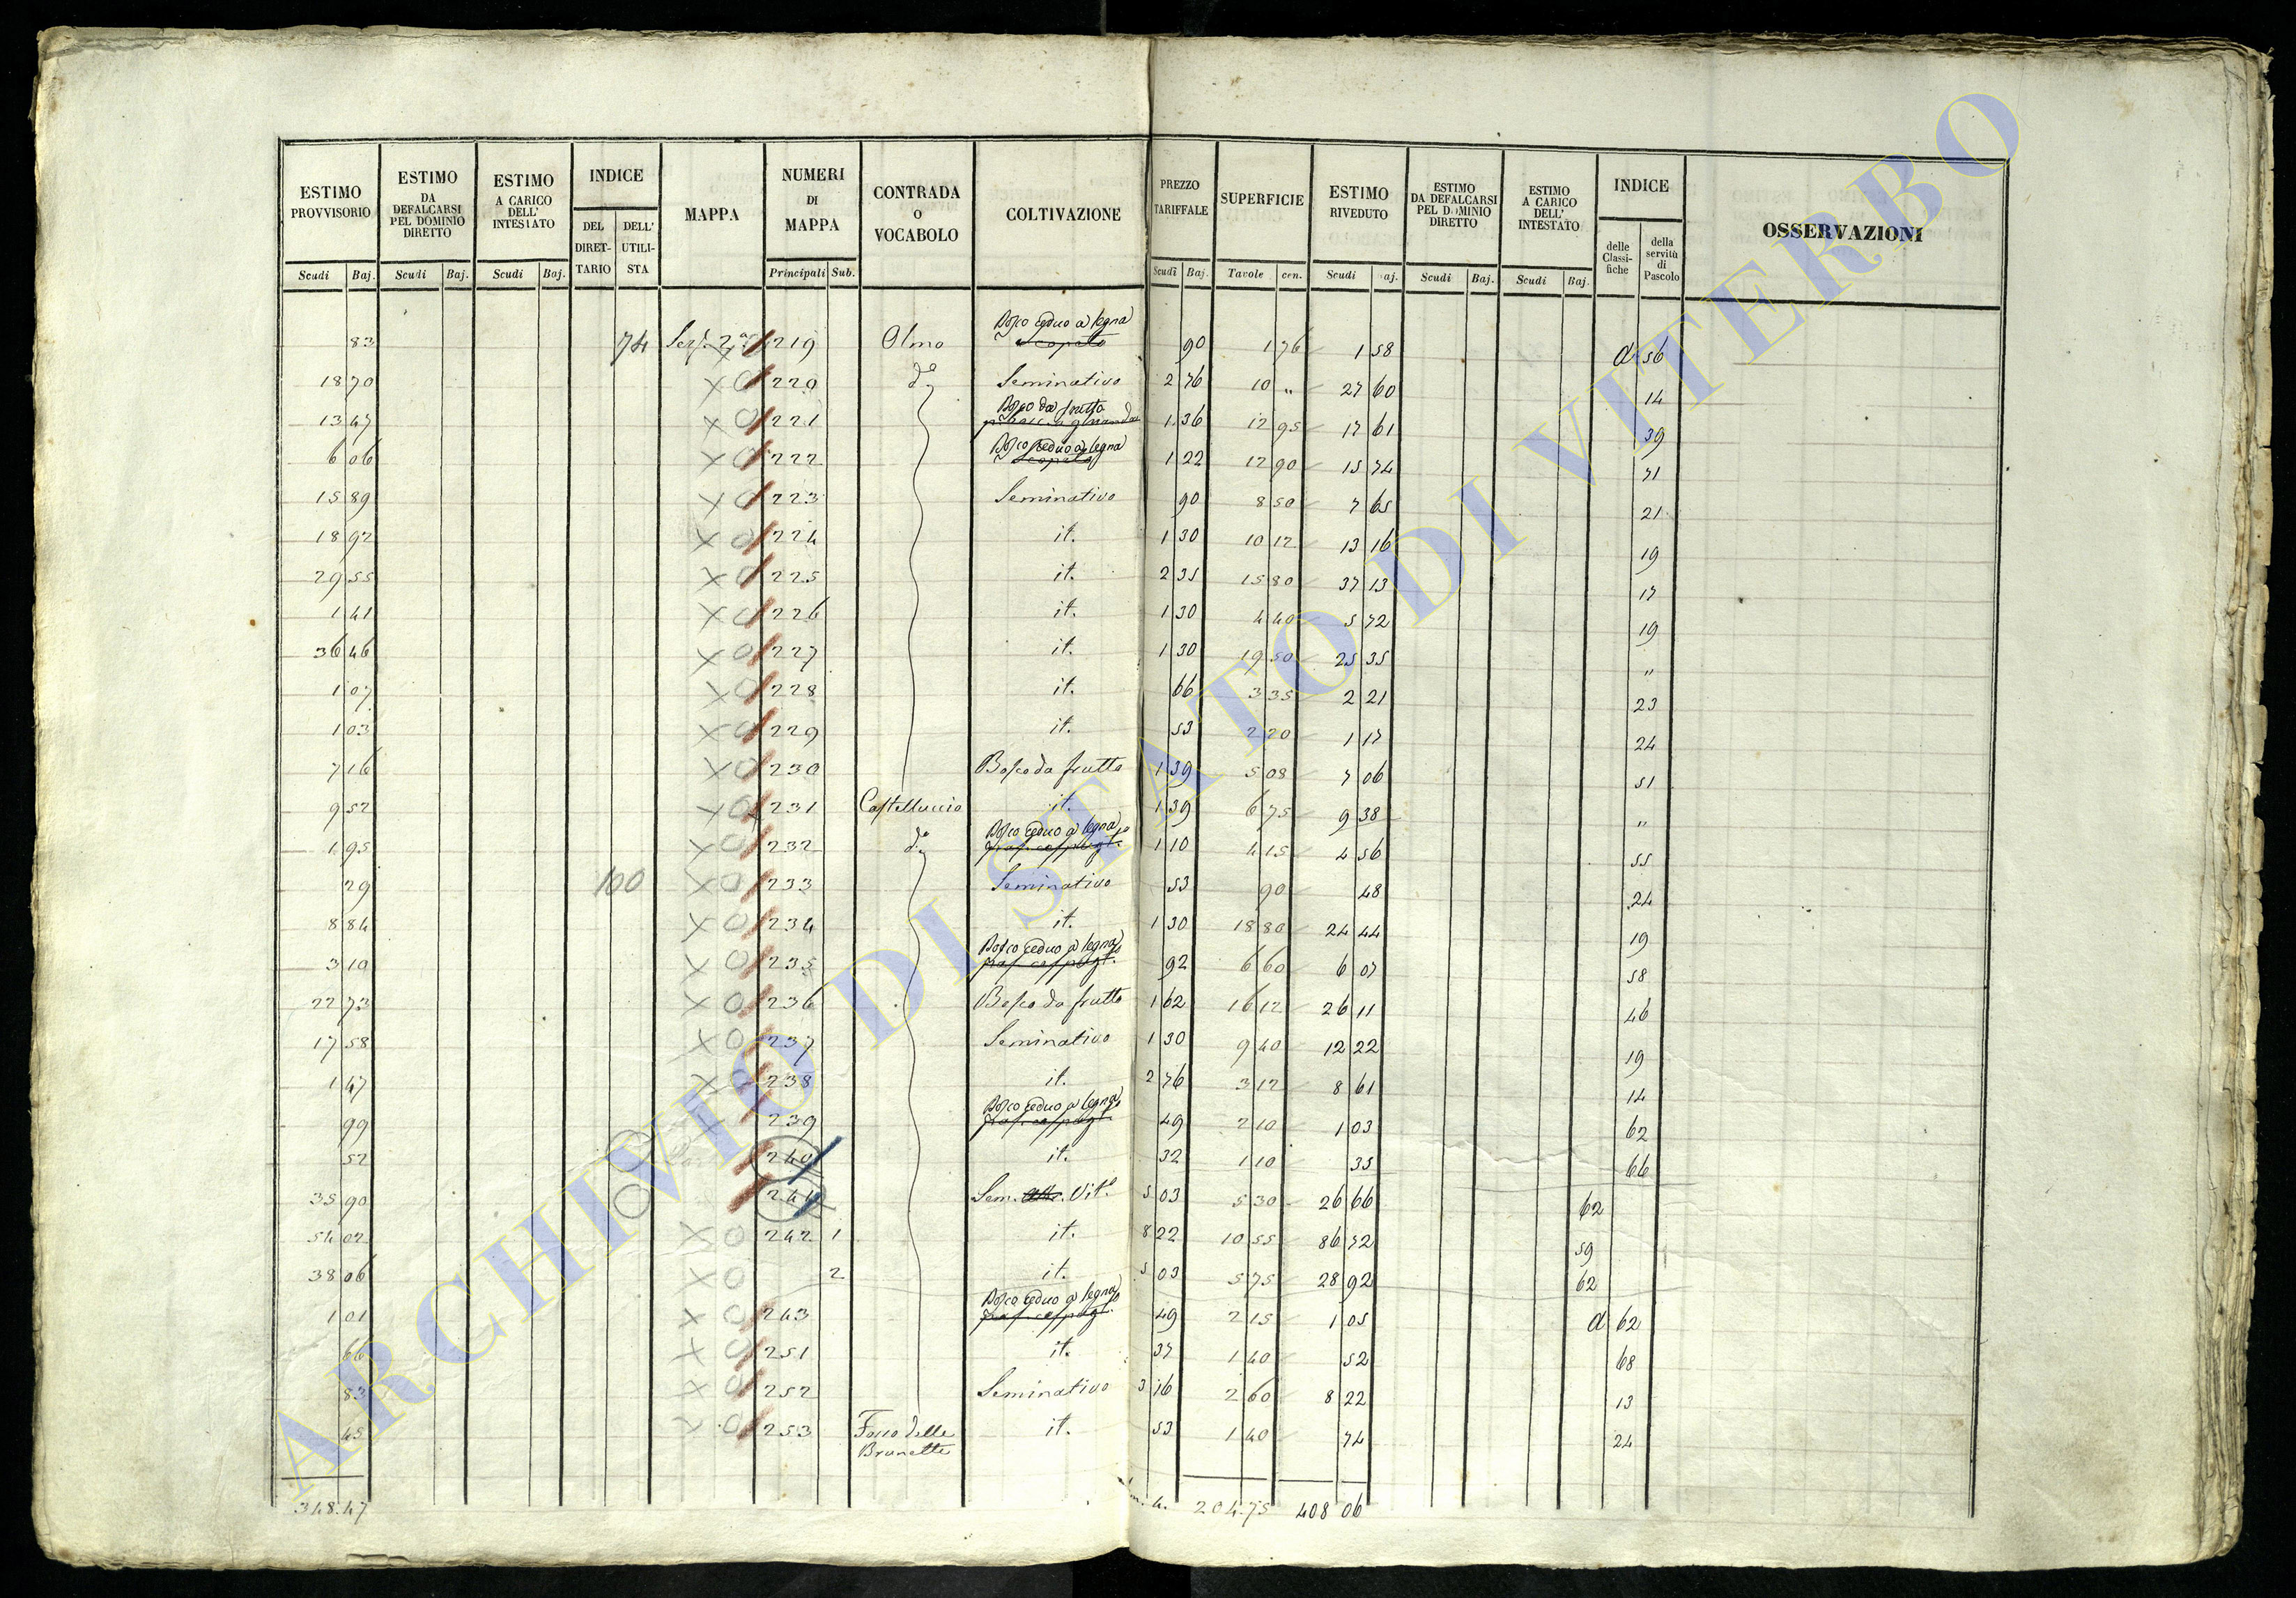 ESTIMO PROVVISORIO Scudi Baj. | ESTIMO DA DEFALCARSI PEL DOMINIO DIRETTO Scudi Baj. | ESTIMO A CARICO DELL' INTESTATO Scudi Baj. | INDICE DEL DIRETTARIO DELL' UTILISTA | MAPPA | NUMERI DI MAPPA Principali Sub. | CONTRADA O VOCABOLO | COLTIVAZIONE | PREZZO TARIFFALE Scudi Baj. | SUPERFICIE Tavole cen. | ESTIMO RIVEDUTO Scudi aj. | ESTIMO DA DEFALCARSI PEL DOMINIO DIRETTO Scudi Baj. | ESTIMO A CARICO DELL' INTESTATO Scudi Baj. | INDICE delle Classifiche della servitù di Pascolo | OSSERVAZIONI
83 74 Sez. 2a 219 Olmo Bosco ceduo a legna scopeto 90 1 76 1 58 d 56
18 70 X 0 220 do Seminativo 2 76 10 " 27 60 14
13 47 X 0 221 Bosco da frutto 1 36 12 95 17 61 39
6 06 X 0 222 Bosco ceduo a legna scopeto 1 22 12 90 15 74 71
15 89 X 0 223 Seminativo 90 8 50 7 65 21
18 92 X 0 224 it. 1 30 10 12 13 16 19
29 55 X 0 225 it. 2 35 15 80 37 13 17
1 41 X 0 226 it. 1 30 4 40 5 72 19
36 46 X 0 227 it. 1 30 19 50 25 35 "
1 07 X 0 228 it. 66 3 35 2 21 23
1 03 X 0 229 it. 53 2 20 1 17 24
7 16 X 0 230 Bosco da frutto 1 39 5 08 7 06 51
9 52 X 0 231 Castelluccio it. 1 39 6 75 9 38 "
1 95 X 0 232 do Bosco ceduo a legna 1 10 4 15 4 56 55
29 100 X 0 233 Seminativo 53 90 48 24
8 84 X 0 234 it. 1 30 18 80 24 44 19
3 10 X 0 235 Bosco ceduo a legna 92 6 60 6 07 58
22 73 X 0 236 Bosco da frutto 1 62 16 12 26 11 46
17 58 X 0 237 Seminativo 1 30 9 40 12 22 19
1 47 X 0 238 it. 2 76 3 12 8 61 14
99 X 239 Bosco ceduo a legna 49 2 10 1 03 62
52 240 it. 32 1 10 35 66
35 90 241 Sem. Vit.o 5 03 5 30 26 66 62
54 02 X 0 242 1 it. 8 22 10 55 86 72 59
38 06 X 0 2 it. 5 03 5 75 28 92 62
1 01 X 0 243 Bosco ceduo a legna 49 2 15 1 05 d 62
66 X 0 251 it. 37 1 40 52 68
83 X 0 252 Seminativo 3 16 2 60 8 22 13
45 0 253 Fosso delle it. 53 1 40 74 24
Brunette
348.47 204.75 408 06
ARCHIVIO DI STATO DI VITERBO